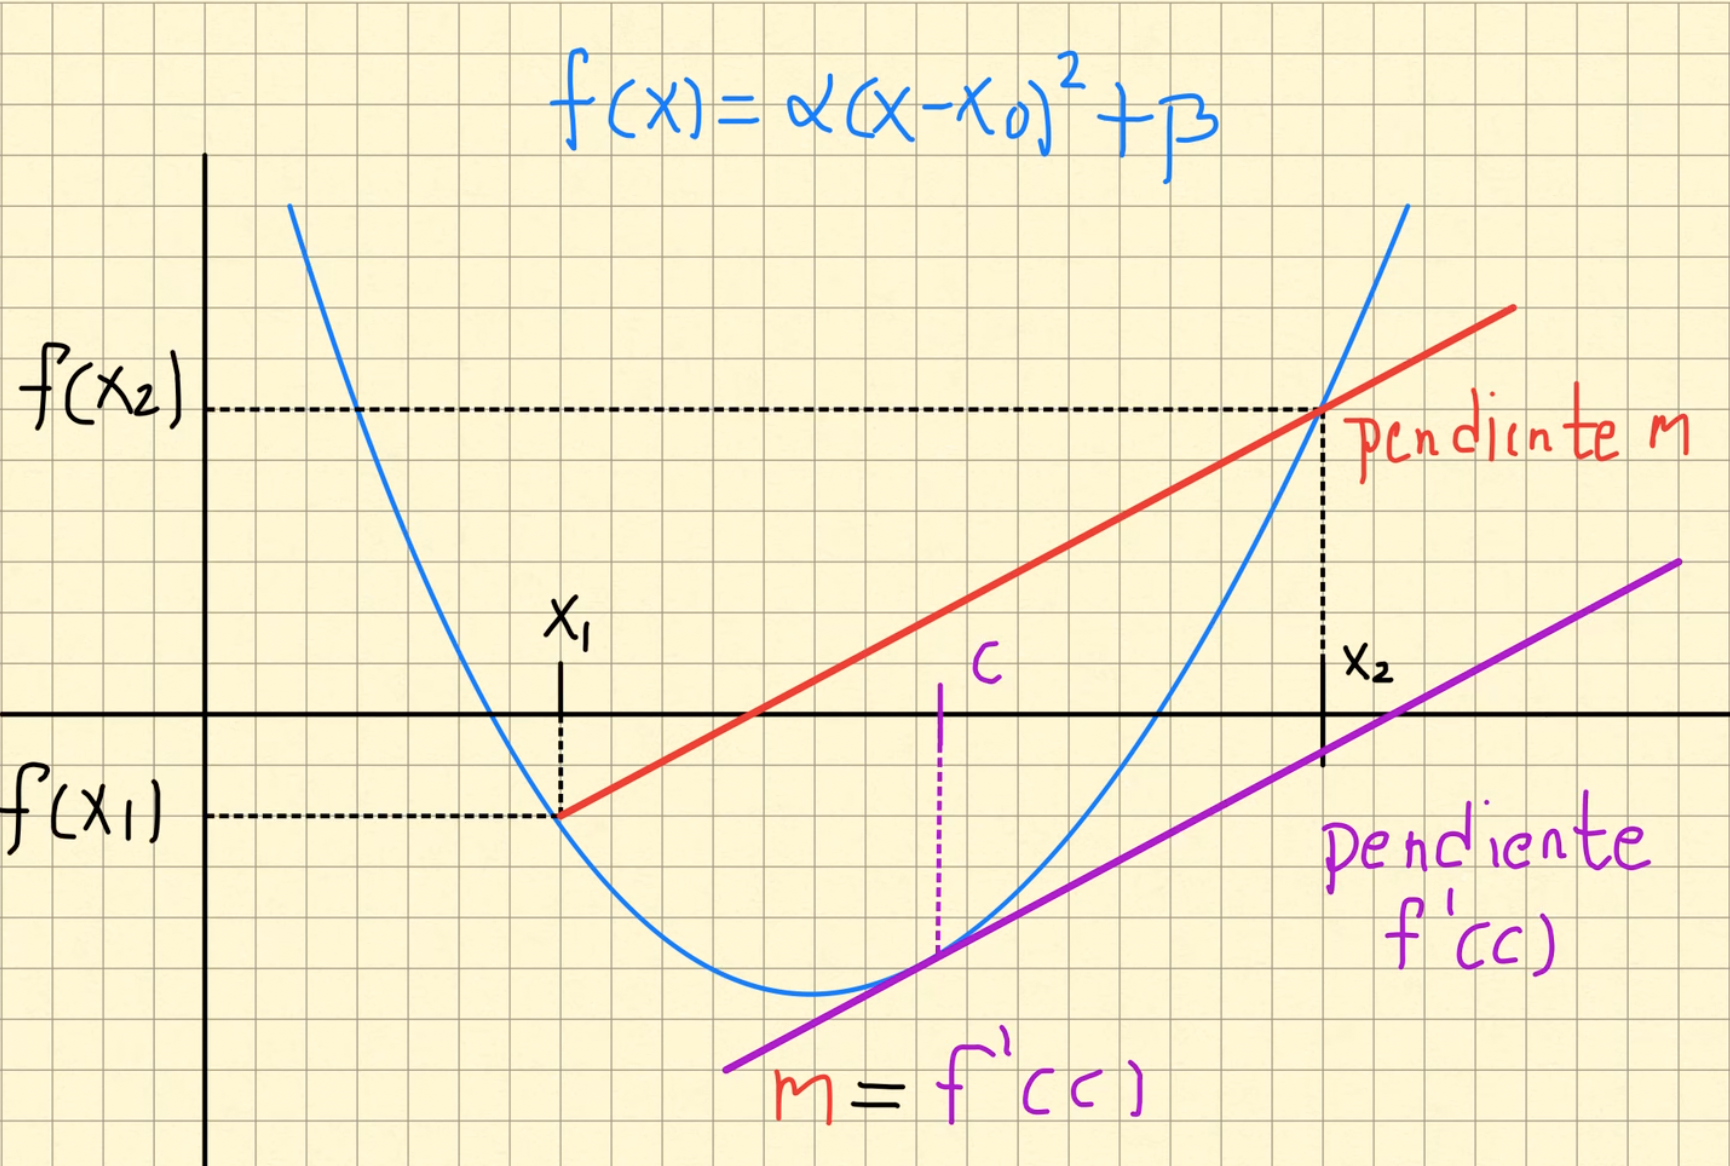 f(x) = α(x-x₀)² + β
f(x₂)
pendiente m
x₁
c
x₂
f(x₁)
pendiente
f'(c)
m = f'(c)